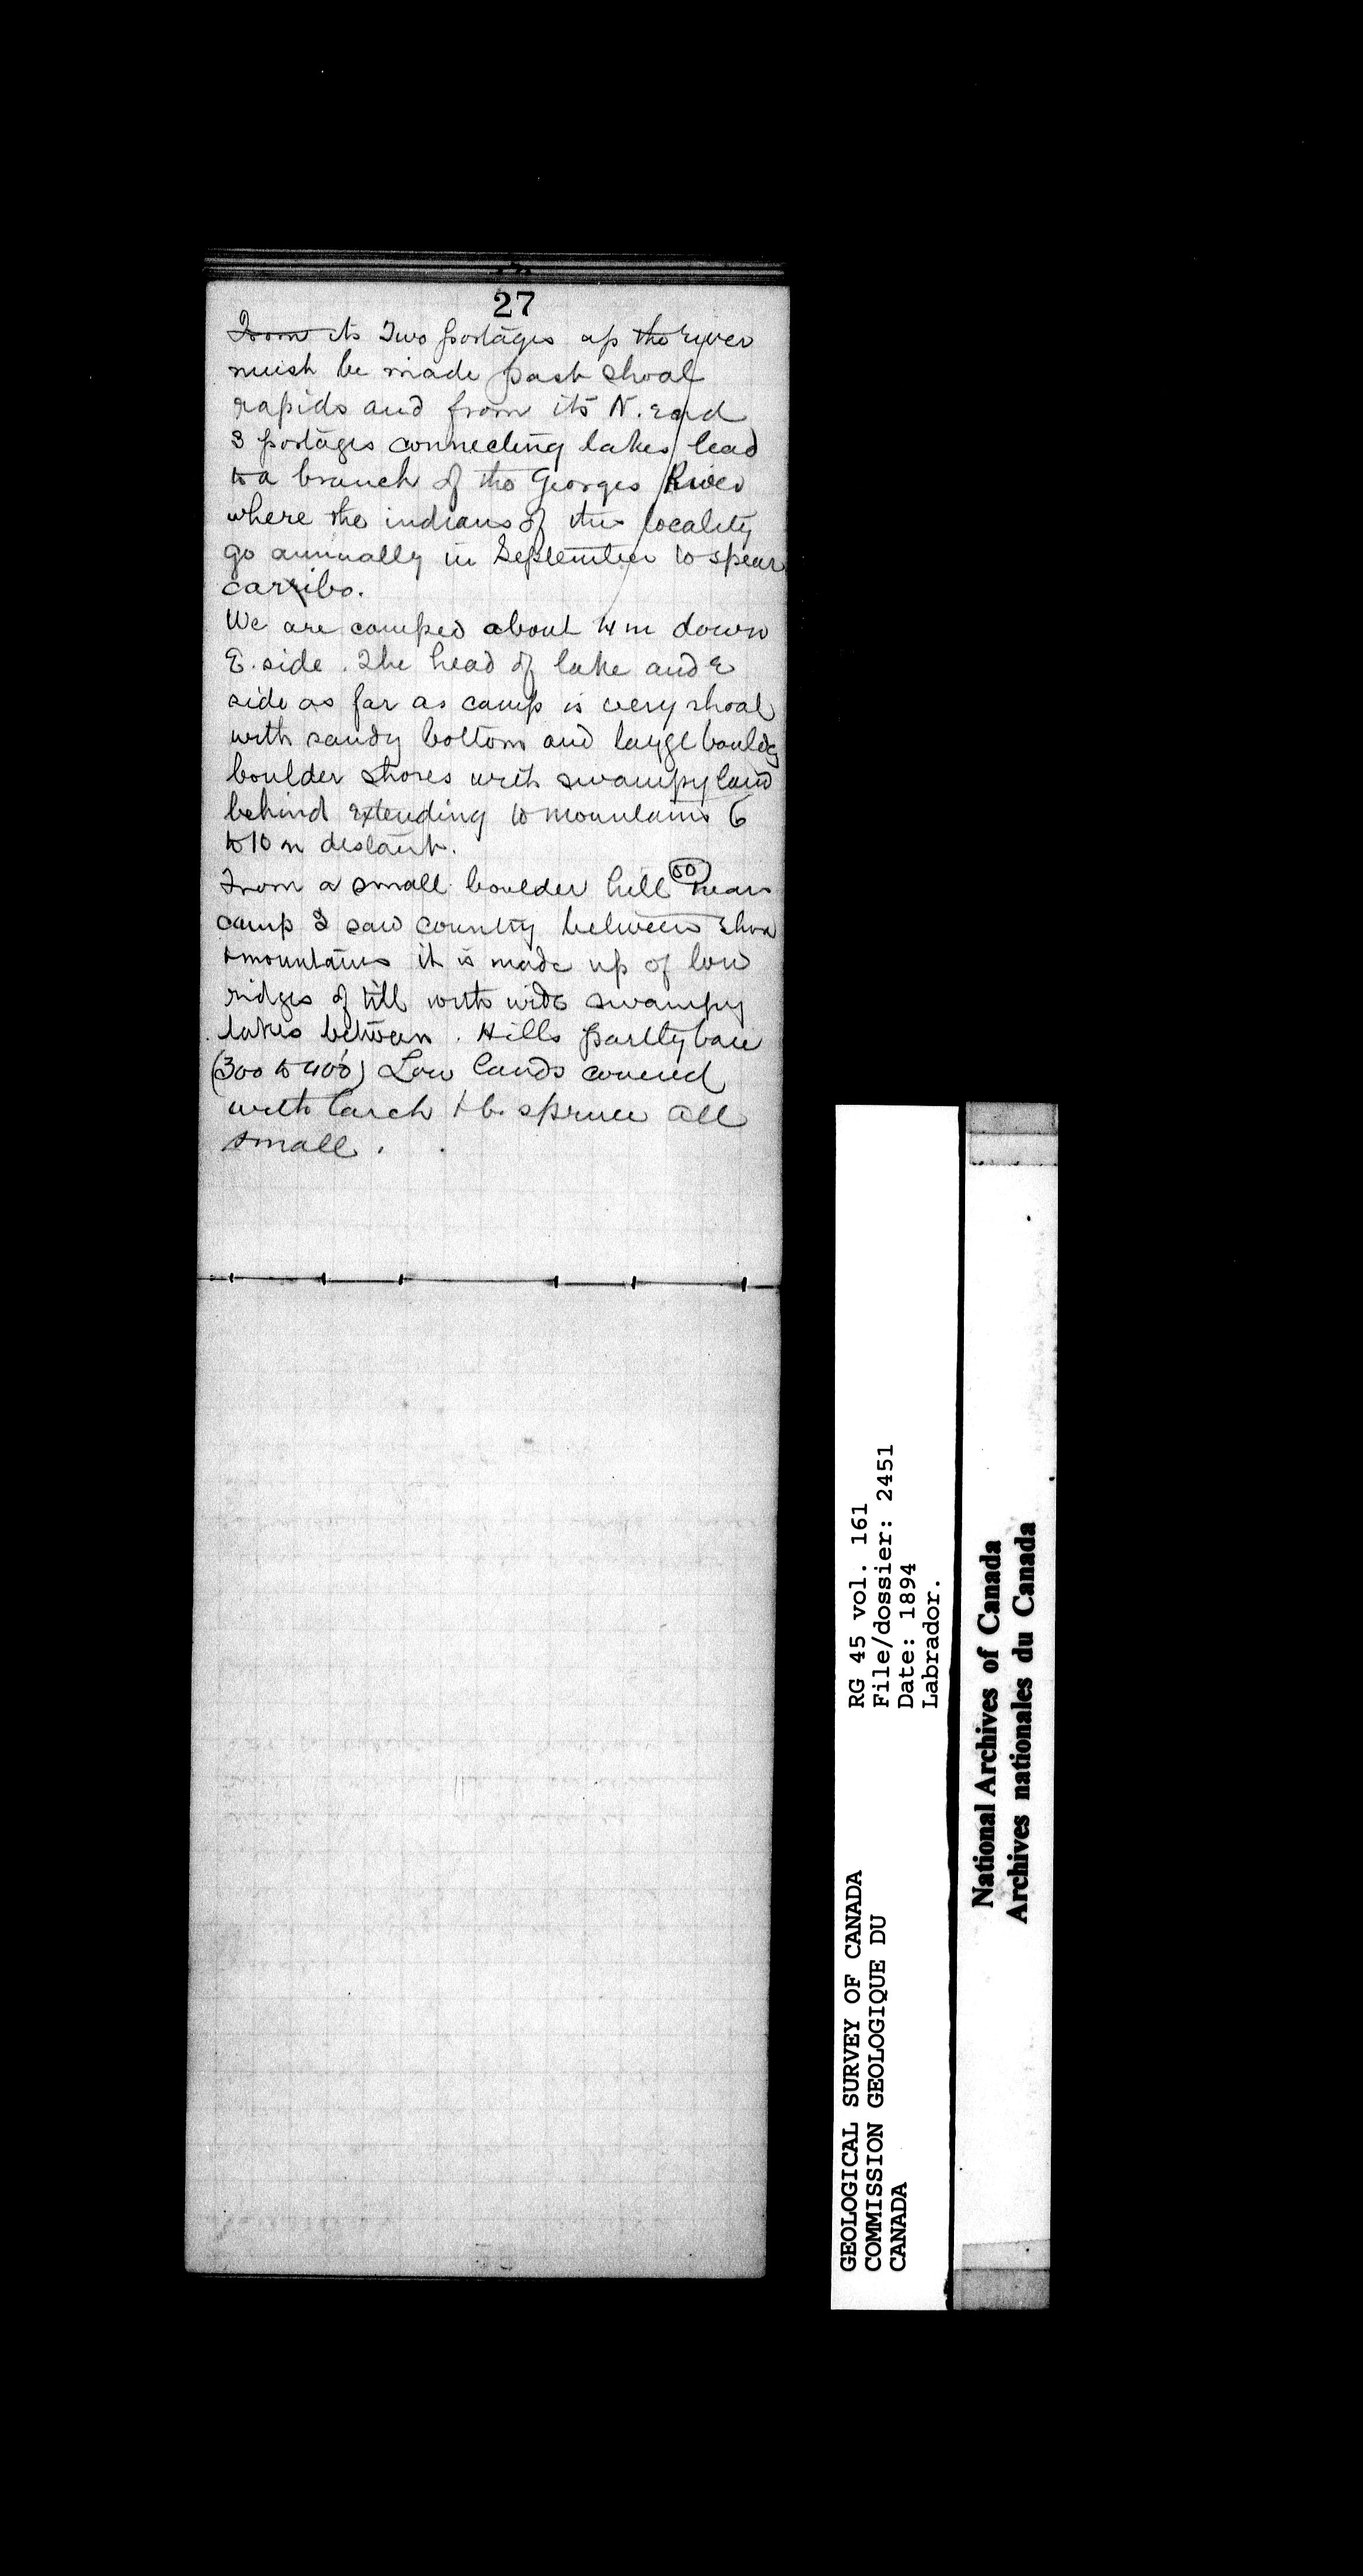 27
From its Two portages up the river
must be made past shoal
rapids and from its N. end
3 portages connecting lakes lead
to a branch of the Georges River
where the indians of this locality
go annually in September to spear
carribo.
We are camped about 4 m down
E. side. The head of lake and E
side as far as camp is very shoal
with sandy bottom and large
boulder shores with swampy land
behind extending to mountains 6
to 10 m distant.
From a small boulder hill 50 near
camp I saw country between shore
& mountains it is made up of low
ridges of till with wide swampy
lakes between. Hills partly bare
(300 to 400') Low lands covered
with larch & b. spruce all
small.
GEOLOGICAL SURVEY OF CANADA
COMMISSION GEOLOGIQUE DU
CANADA
RG 45 vol. 161
File/dossier: 2451
Date: 1894
Labrador.
National Archives of Canada
Archives nationales du Canada